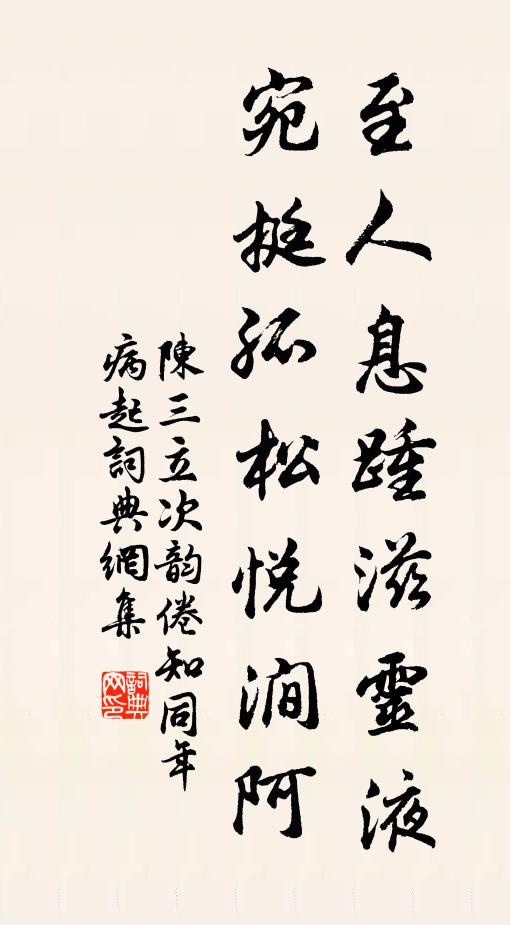 至人息踵滋靈液
宛挺孤松悦澗阿
陳三立次韵倦知同年
病起詞典網集
詞典网印